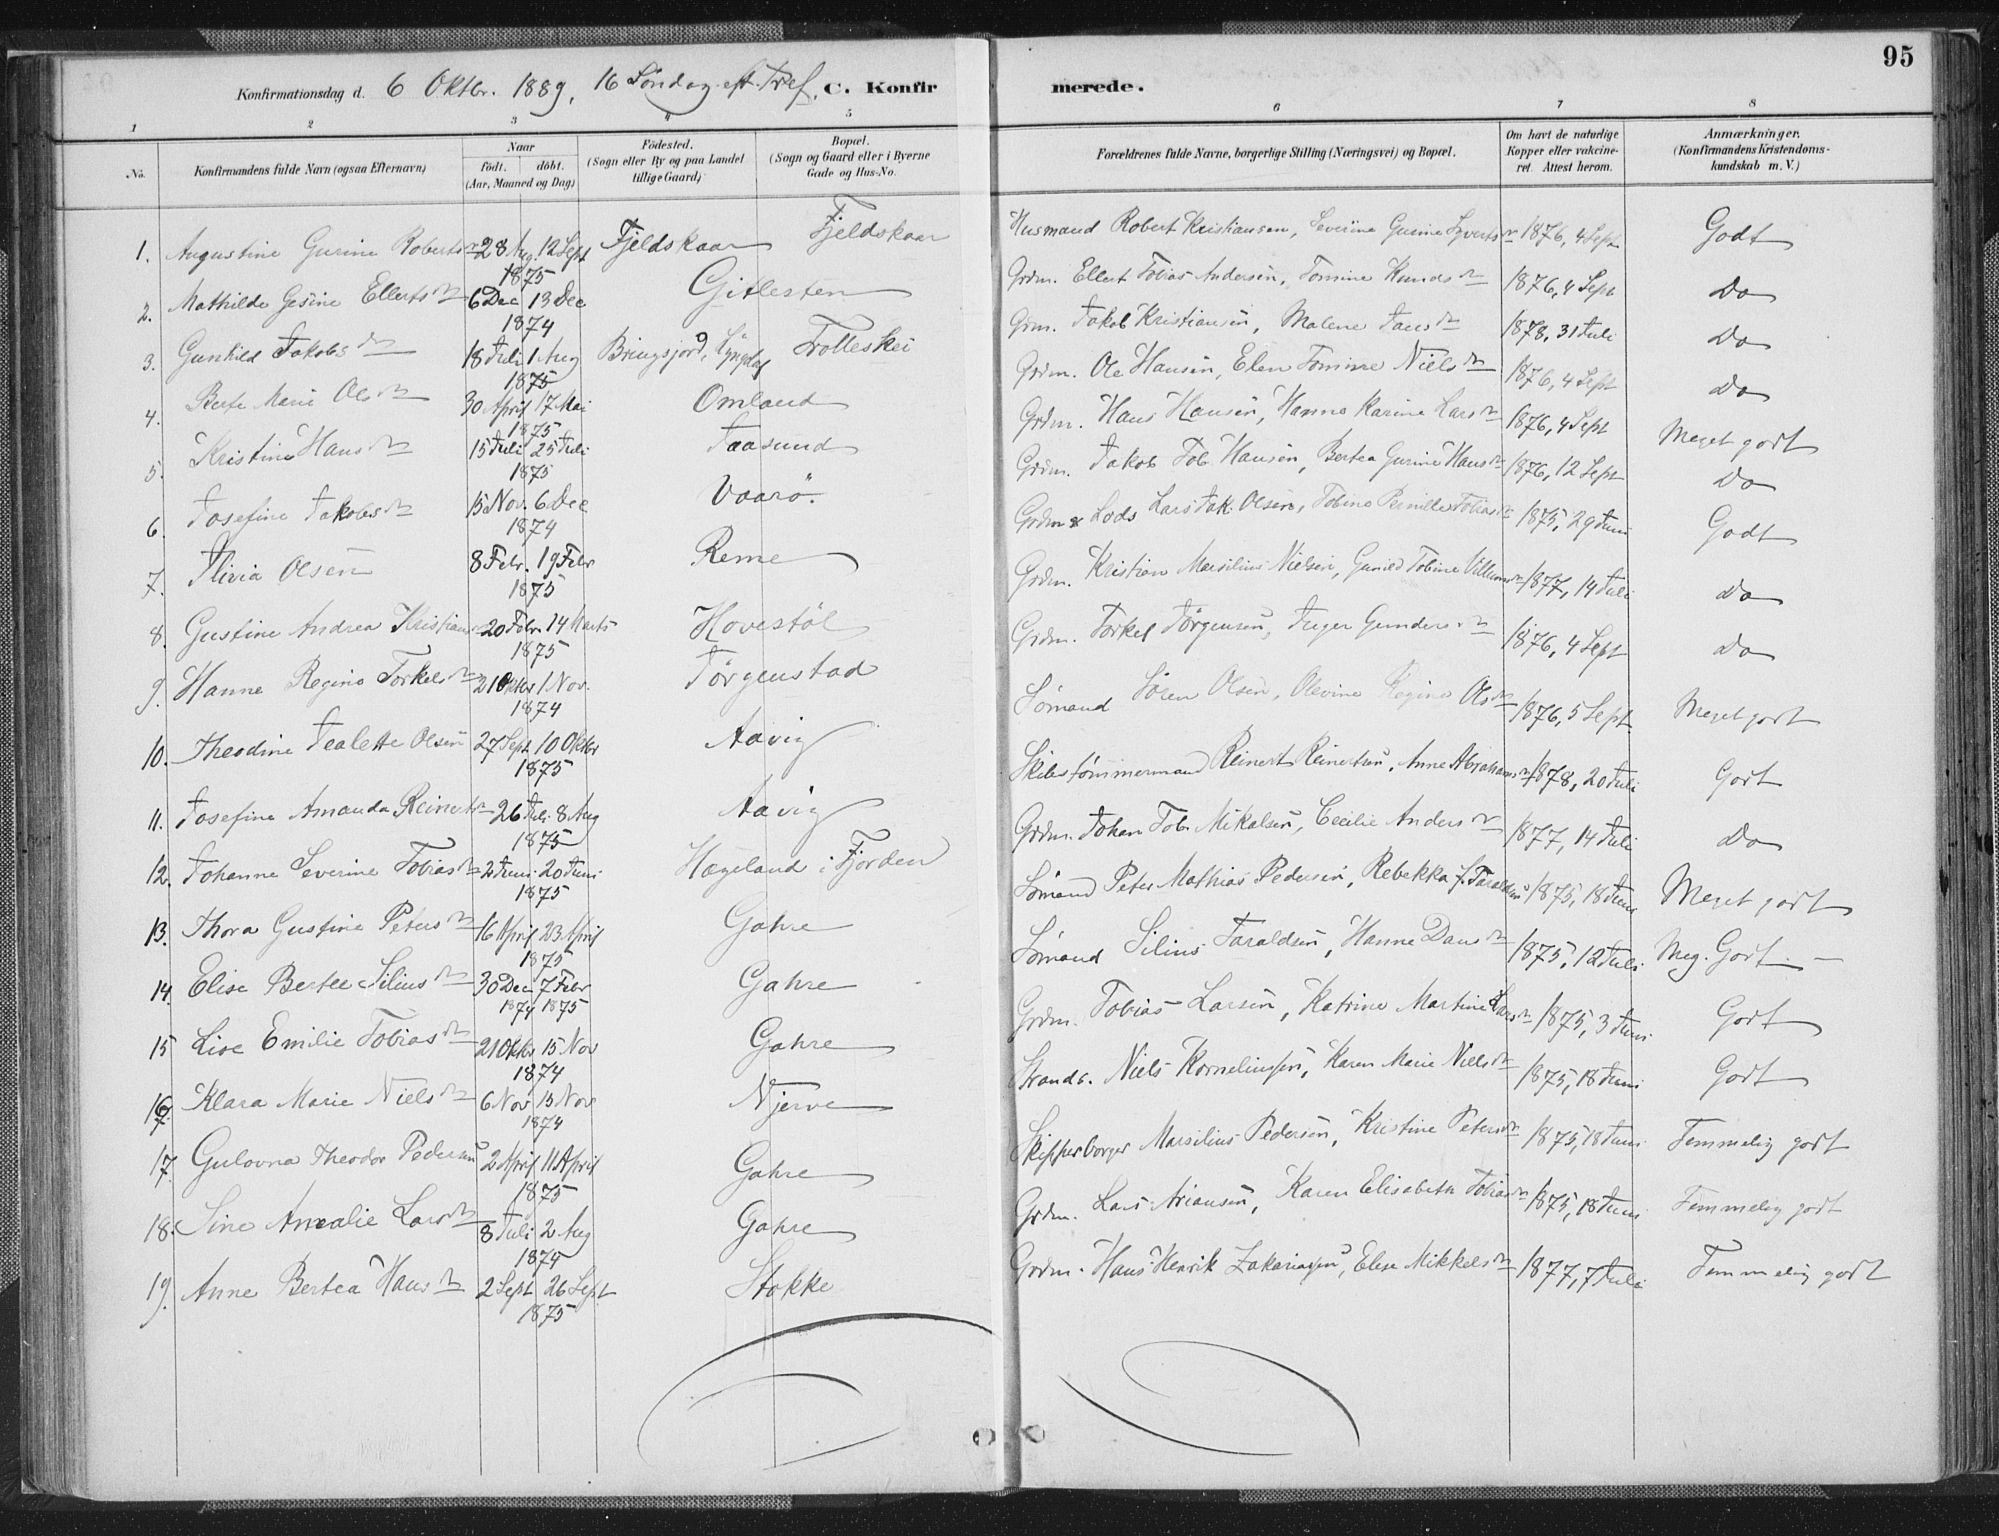 95
Konfirmationsdag d. 6 Oktbr. 1889, 16 Söndag eft. Tref. C. Konfir merede.
1 2 3 4 5 6 7 8
No. Konfirmandens fulde Navn (ogsaa Efternavn) Naar födt. döbt. (Aar, Maaned og Dag) Födested. (Sogn eller By og paa Landet tillige Gaard) Bopæl. (Sogn og Gaard eller i Byerne Gade og Hus-No. Forældrenes fulde Navne, borgerlige Stilling (Næringsvei) og Bopæl. Om havt de naturlige Kopper eller vakcineret. Attest herom. Anmærkninger. (Konfirmandens Kristendomskundskab m. V.)
1. Augustine Gurine Robertsdn 28 Aug. 12 Sept 1875 Fjeldskaar Fjeldskaar Husmand Robert Kristiansen, Severine Gurine Syvertsdn 1876, 4 Sept Godt
2. Mathilde Gesine Ellertsdn 6 Dec 13 Dec 1874 Gitlesten Grdm. Ellert Tobias Andersen, Tomine Knudsdn 1876, 4 Sept Do
3. Gunhild Jakobsdn 18 Juli 1 Aug 1875 Bringsjord, Lyngdal Trolleskei Grm. Jakob Kristiansen, Malene Jansdn 1878, 31 Juli Do
4. Berte Marie Olsdn 30 April 17 Mai 1875 Omland Grdm. Ole Hansen, Elen Tomine Nielsdn 1876, 4 Sept Do
5. Kristine Hansdn 15 Juli 25 Juli 1875 Jaasund Grdm. Hans Hansen, Hanne Karine Larsdn 1876, 4 Sept Meget godt
6. Josefine Jakobsdn 15 Nov. 6 Dec 1874 Vaarö Grdm. Jakob Tob. Hansen, Bertea Gurine Hansdn 1876, 12 Sept Do
7. Olsen 8 Febr. 19 Febr 1875 Reme Grdm & Lods Lars Jak. Olsen, Tobine Pernille Tobiasdn 1875, 29 Juni Godt
8. Gustine Andrea Kristiansdn 20 Febr. 14 Marts 1875 Hovestöl Grdm. Kristian Marsilius Nielsen, Gunild Tobine Villumsdn 1877, 14 Juli Do
9. Hanne Regine Torkelsdn 21 Oktbr 1 Nov. 1874 Jörgenstad Grdm. Torkel Jörgensen, Inger Gundersdn 1876, 4 Sept Do
10. Theodine Tealette Olsen 27 Sept. 10 Oktbr 1875 Aavig Sömand Sören Olsen, Olevine Regine Olsdn 1876, 5 Sept Meget godt
11. Josefine Amanda Reinertsdn 26 Juli 8 Aug 1875 Aavig Skibstömmermand Reinert Reinertsen, Anne Abrahamsdn 1878, 20 Juli Godt
12. Johanne Severine Tobiasdn 2 Juni 20 Juni 1875 Hægeland i Fjorden Grdm. Johan Tob. Mikalsen, Cecilie Andersdn 1877, 14 Juli Do
13. Thora Gustine Petersdn 16 April 23 April 1875 Gahre Sömand Peter Mathias Pedersen, Rebekka f. Taraldsen 1875, 18 Juni Meget godt
14. Elise Bertee Siliusdn 30 Dec 7 Febr 1874 1875 Gahre Sömand Silius Taraldsen, Hanne Dansdn 1875, 12 Juli Meg. Godt
15 Lise Emilie Tobiasdn 21 Oktbr 15 Nov 1874 Gahre Grdm. Tobias Larsen, Katrine Martine Larsdn 1875, 3 Juni Godt
16. Klara Marie Nielsdn 6 Nov 15 Nov 1874 Njerve Strands. Niels Korneliussen, Karen Marie Nielsdn 1875, 18 Juni Godt
17. Gulovna Theodor Pedersen 2 April 11 April 1875 Gahre Skipperborger Marsilius Pedersen, Kristine Petersdn 1875, 18 Juni Temmelig godt
18. Sine Amalie Larsdn 8 Juli 2 Aug 1874 Gahre Grdm. Lars Ariansen, Karen Elisabeth Tobiasdn 1875, 18 Juni Temmelig godt
19. Anne Bertea Hansdn 2 Sept 26 Sept 1875 Stokke Grdm. Hans Henrik Zakariasen, Elise Mikkelsdn 1877, 7 Juli Temmelig godt